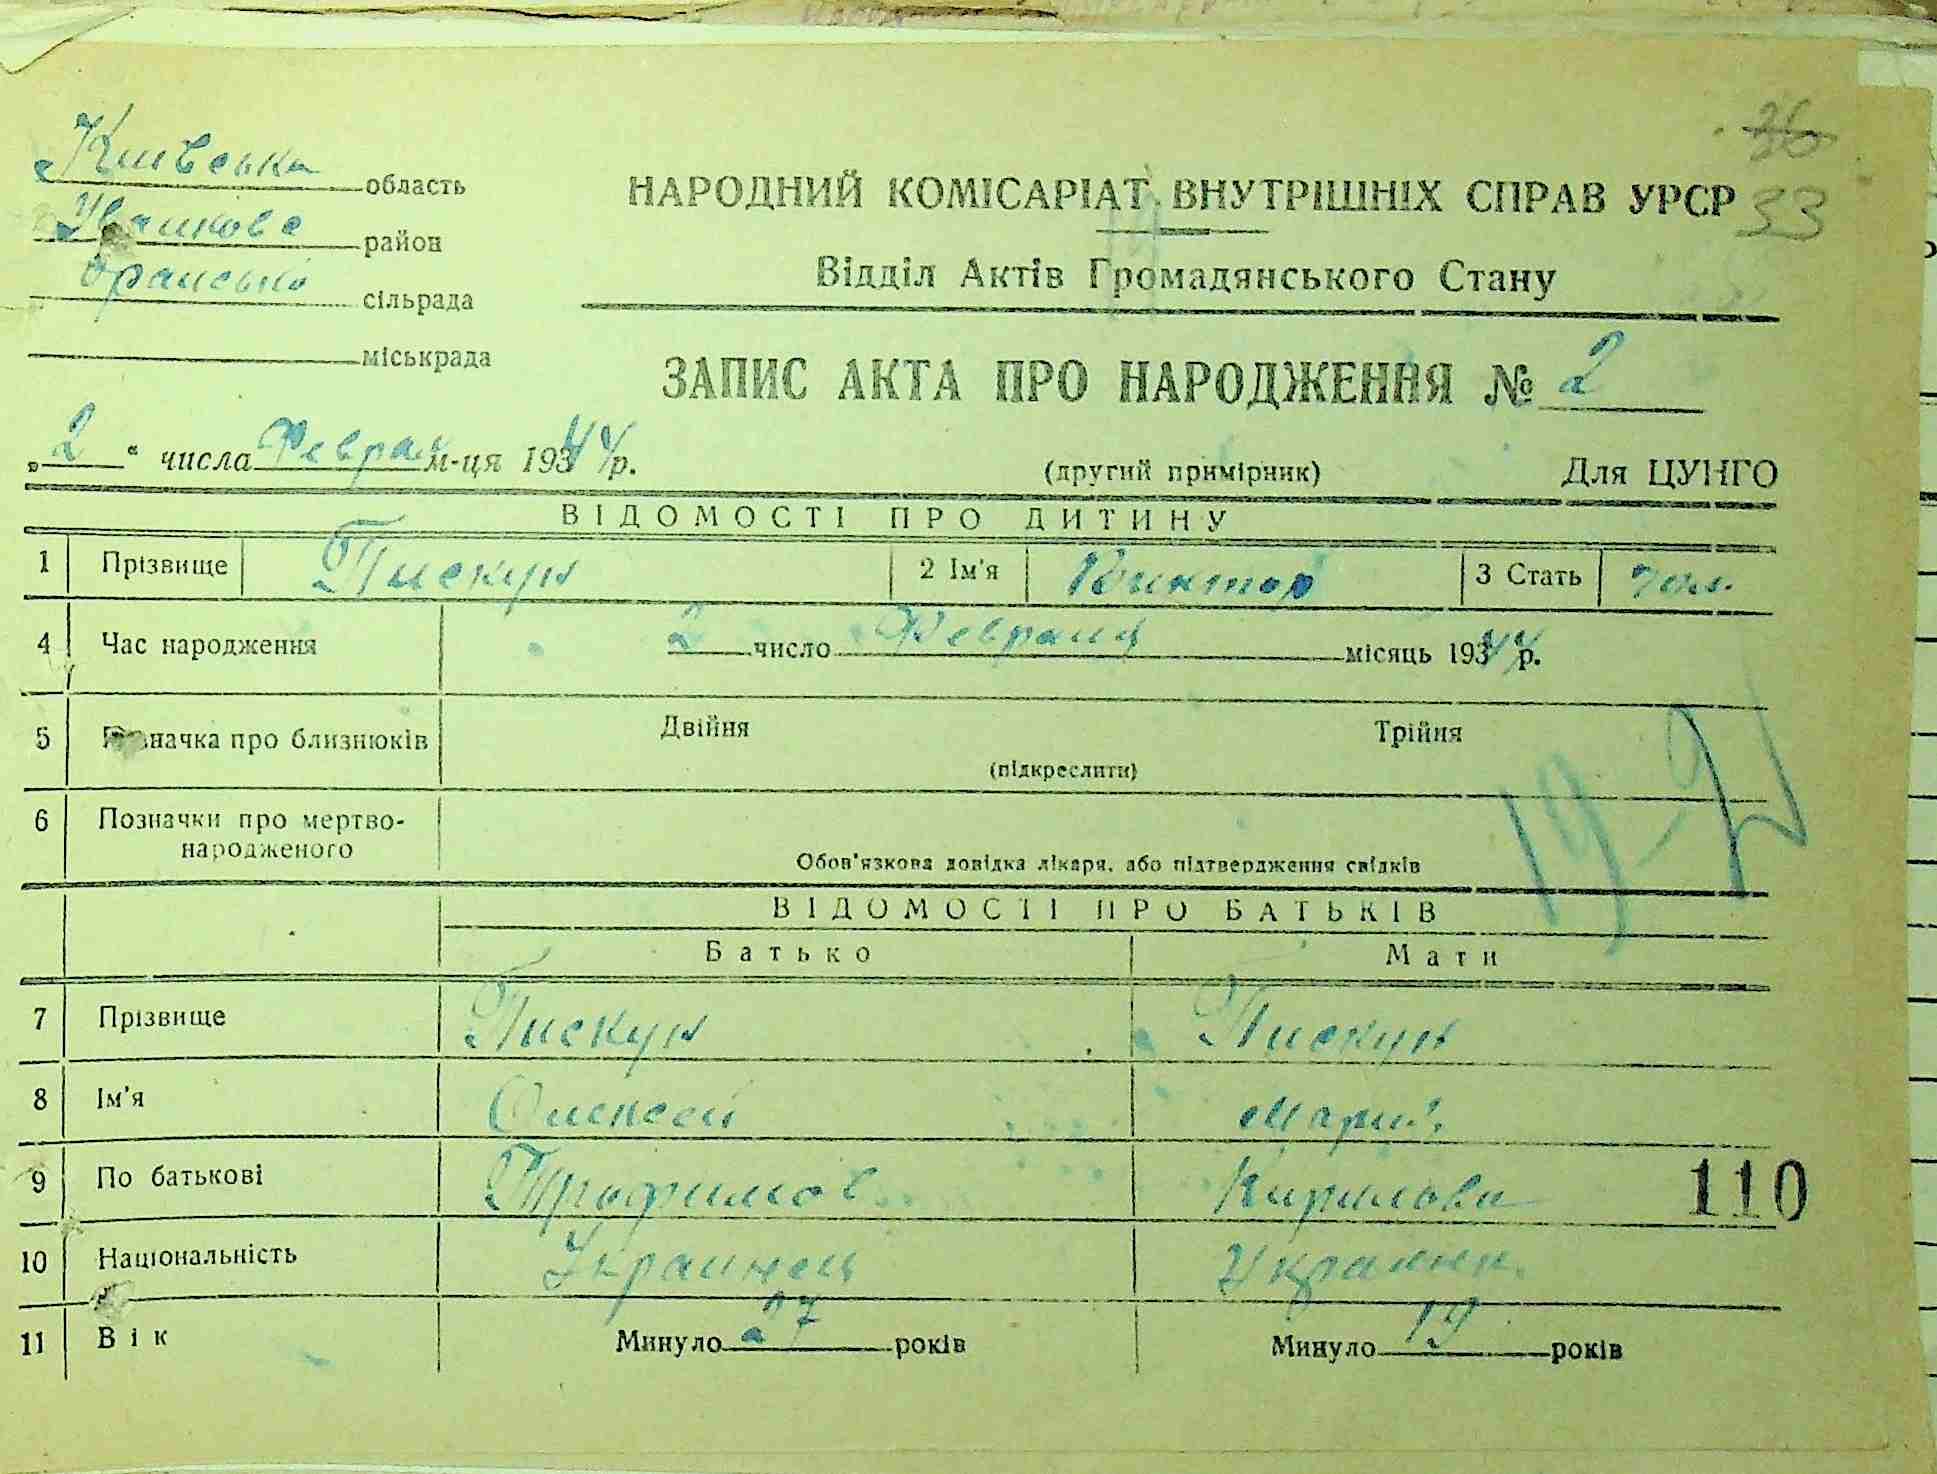 36
Київська область
НАРОДНИЙ КОМІСАРІАТ ВНУТРІШНІХ СПРАВ УРСР 33
район
Відділ Актів Громадянського Стану
сільрада
міськрада
ЗАПИС АКТА ПРО НАРОДЖЕННЯ № 2
„2“ числа Феврал м-ця 1944 р.
(другий примірник) Для ЦУНГО
ВІДОМОСТІ ПРО ДИТИНУ
1 Прізвище Пискун 2 Ім'я Виктор 3 Стать чол.
4 Час народження 2 число Февраля місяць 1944 р.
5 Позначка про близнюків Двійня Трійня
(підкреслити)
6 Позначки про мертвонародженого
Обов'язкова довідка лікаря, або підтвердження свідків
ВІДОМОСТІ ПРО БАТЬКІВ
Батько Мати
7 Прізвище Пискун Пискун
8 Ім'я Олексей Мария
9 По батькові Трофимов Кирилова 110
10 Національність Украинец Украинк.
11 Вік Минуло 27 років Минуло 19 років